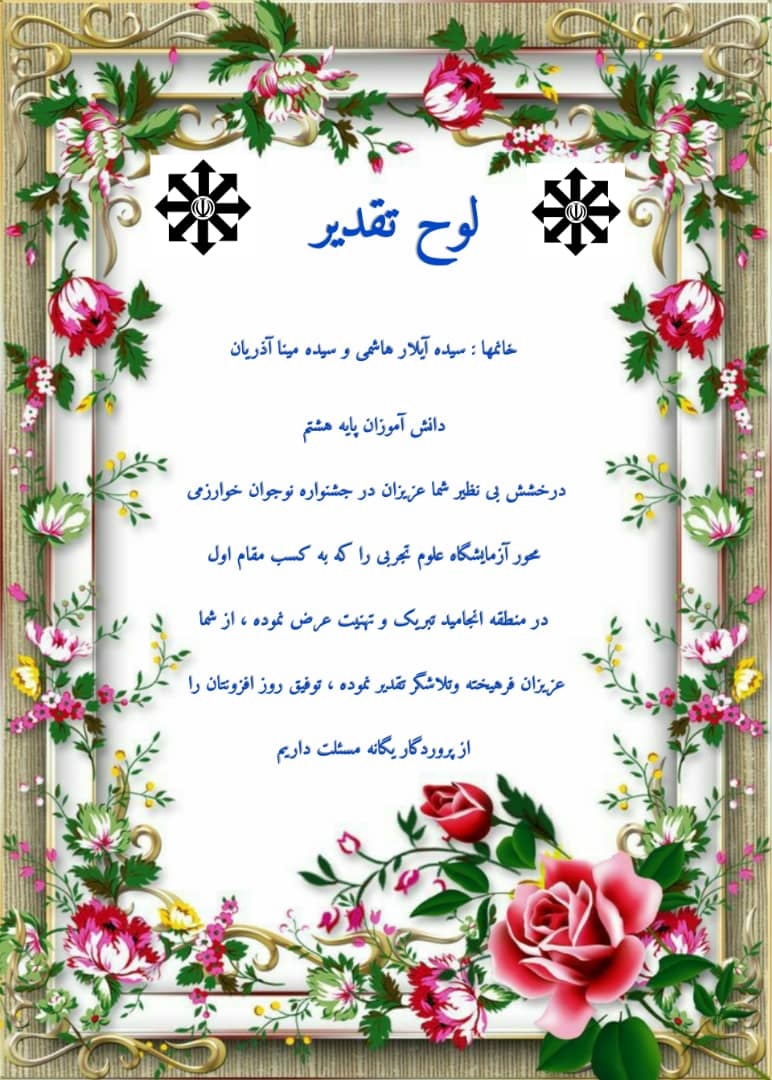 لوح تقدیر
خانمها : سیده آیلار هاشمی و سیده مینا آذریان
دانش آموزان پایه هشتم
درخشش بی نظیر شما عزیزان در جشنواره نوجوان خوارزمی
محور آزمایشگاه علوم تجربی را که به کسب مقام اول
در منطقه انجامید تبریک و تهنیت عرض نموده ، از شما
عزیزان فرهیخته وتلاشگر تقدیر نموده ، توفیق روز افزونتان را
از پروردگار یگانه مسئلت داریم